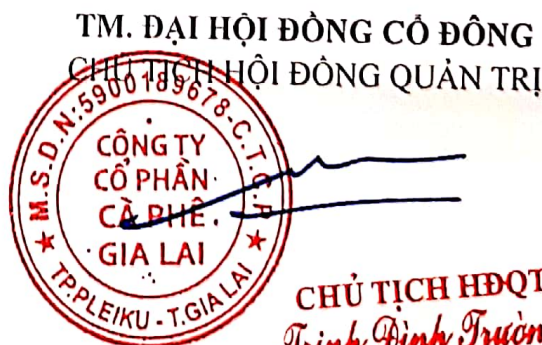 TM. ĐẠI HỘI ĐỒNG CỔ ĐÔNG
CHỦ TỊCH HỘI ĐỒNG QUẢN TRỊ
M.S.D.N:5900189678-C.T.C.P
CÔNG TY
CỔ PHẦN
CÀ PHÊ
GIA LAI
TP.PLEIKU - T.GIA LAI
CHỦ TỊCH HĐQT
Trịnh Đình Trườn